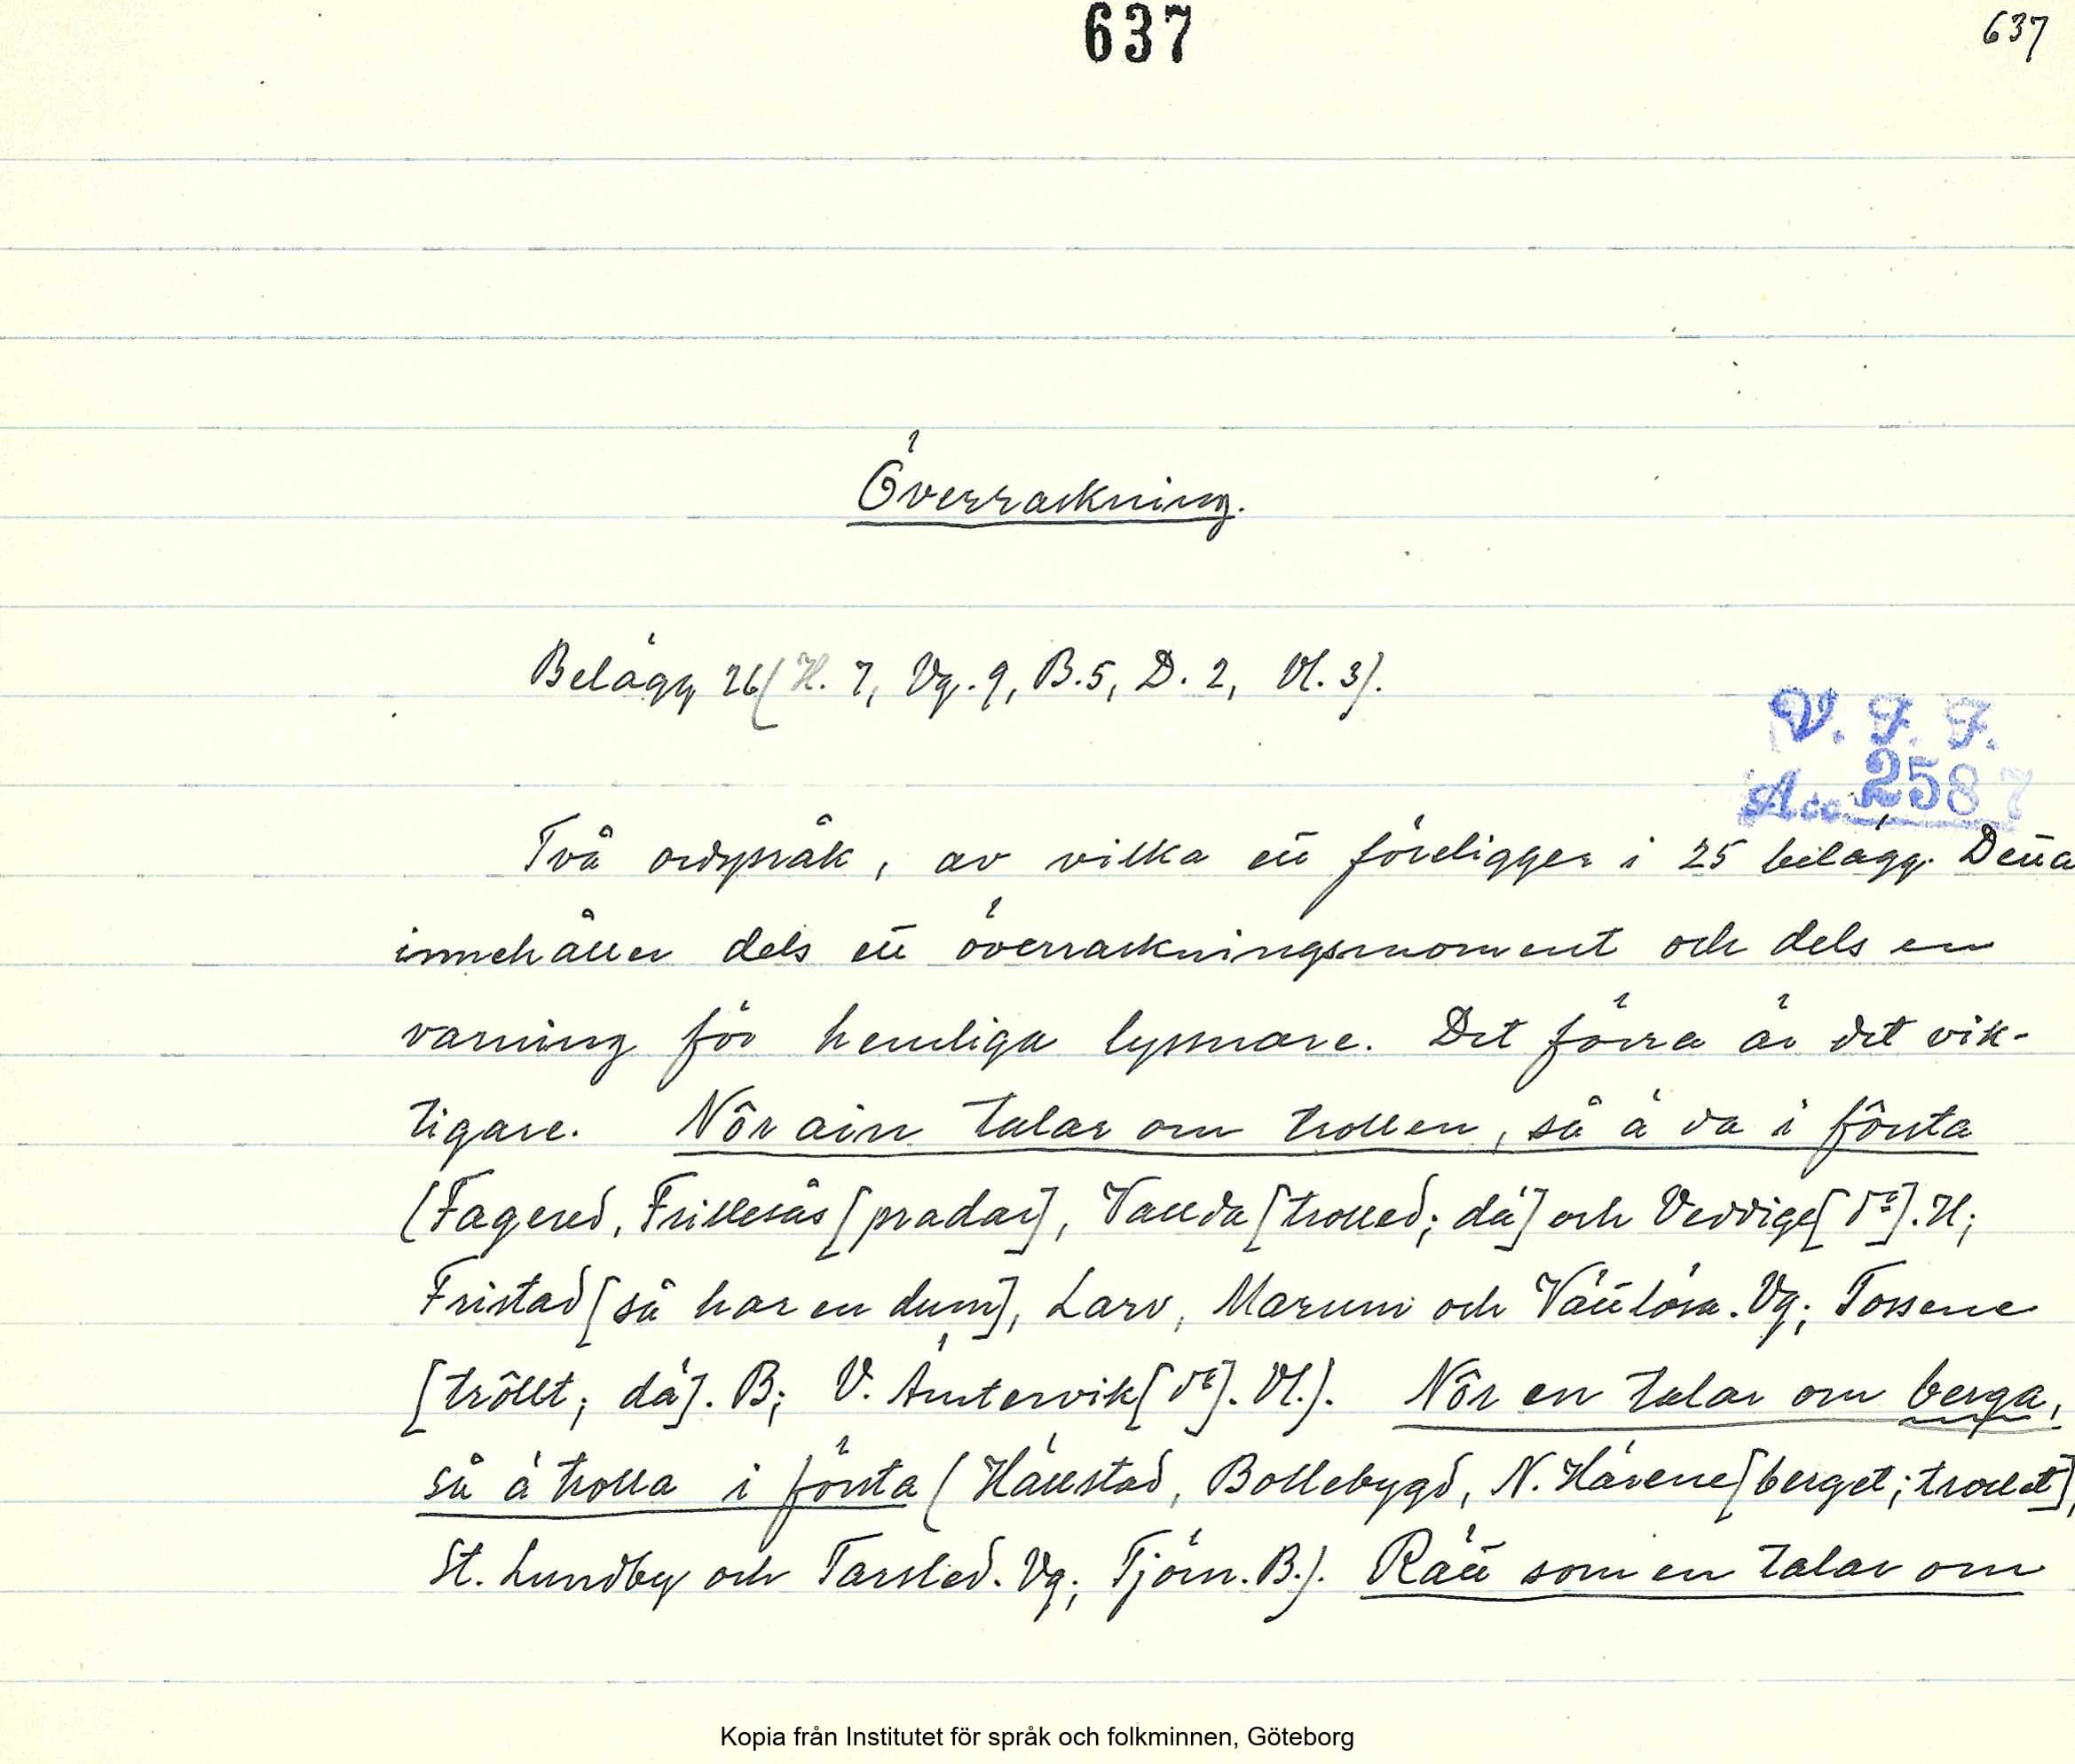 637
637
Överraskning.
Belägg 26 (H. 7, Vg. 9, B. 5, D. 2, Vl. 3).
V. F. F.
Acc. 2587
Två ordspråk, av vilka ett föreligger i 25 belägg. Detta
innehåller dels ett överraskningsmoment och dels en
varning för hemliga lyssnare. Det förra är det vik-
tigare. Nôr ain talar om trollen, så ä da i fôrsta
(Fagered, Frillesås [pradar], Vallda [trolled; dä] och Veddige [do]. H;
Fristad [så har en dum], Larv, Marum och Vättlösa. Vg; Tossene
[trôllt; dä]. B; V. Ämtervik [do]. Vl.). Nôr en talar om berga,
så ä trolla i första (Hällstad, Bollebygd, N. Härene [berget; trollet],
St. Lundby och Tarsled. Vg; Tjörn. B.). Rätt som en talar om
Kopia från Institutet för språk och folkminnen, Göteborg